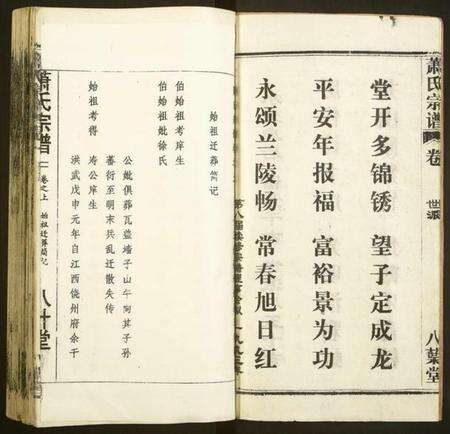 萧氏宗谱
卷
世派
八葉堂
堂开多锦锈 望子定成龙
平安年报福 富裕景为功
永颂兰陵畅 常春旭日红
始祖迁葬简记
伯始祖考库生
伯始祖妣徐氏
公妣俱葬瓦盖墙子山午向其子孙
蕃衍至明末兵乱迁散失传
始祖考得
寿公库生
洪武戊申元年自江西饶州府余干
萧氏宗谱
卷之上
始祖迁葬简记
八叶堂